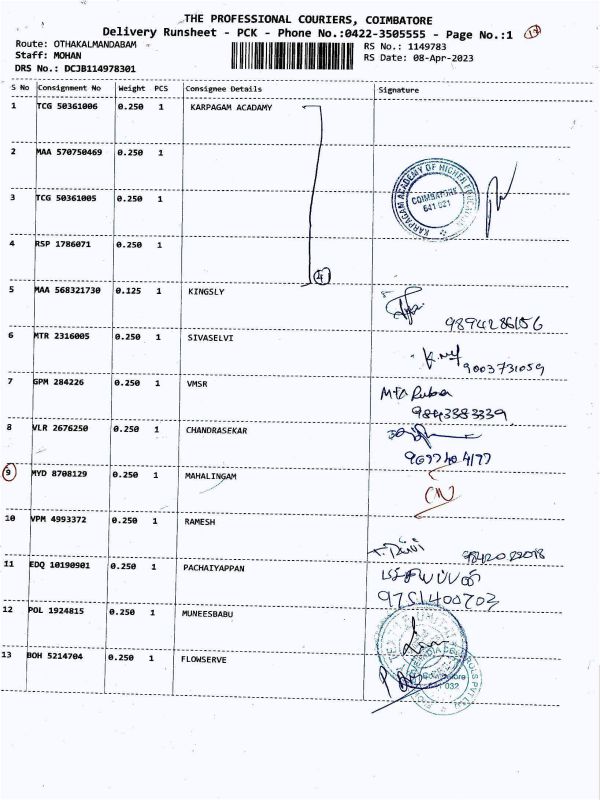 THE PROFESSIONAL COURIERS, COIMBATORE
Delivery Runsheet - PCK - Phone No.:0422-3505555 - Page No.:1
Route: OTHAKALMANDABAM
RS No.: 1149783
Staff: MOHAN
RS Date: 08-Apr-2023
DRS No.: DCJB114978301
S No Consignment No Weight PCS Consignee Details Signature
1 TCG 50361006 0.250 1 KARPAGAM ACADAMY
2 MAA 570750469 0.250 1
KARPAGAM ACADEMY OF HIGHER EDUCATION
COIMBATORE
641 021
3 TCG 50361005 0.250 1
4 RSP 1786071 0.250 1
4
5 MAA 568321730 0.125 1 KINGSLY
9894286156
6 MTR 2316005 0.250 1 SIVASELVI
9003731059
7 GPM 284226 0.250 1 VMSR
9843383339
8 VLR 2676250 0.250 1 CHANDRASEKAR
9 MYD 8708129 0.250 1 MAHALINGAM
10 VPM 4993372 0.250 1 RAMESH
11 EDQ 10190901 0.250 1 PACHAIYAPPAN
9751400703
12 POL 1924815 0.250 1 MUNEESBABU
13 BOH 5214704 0.250 1 FLOWSERVE